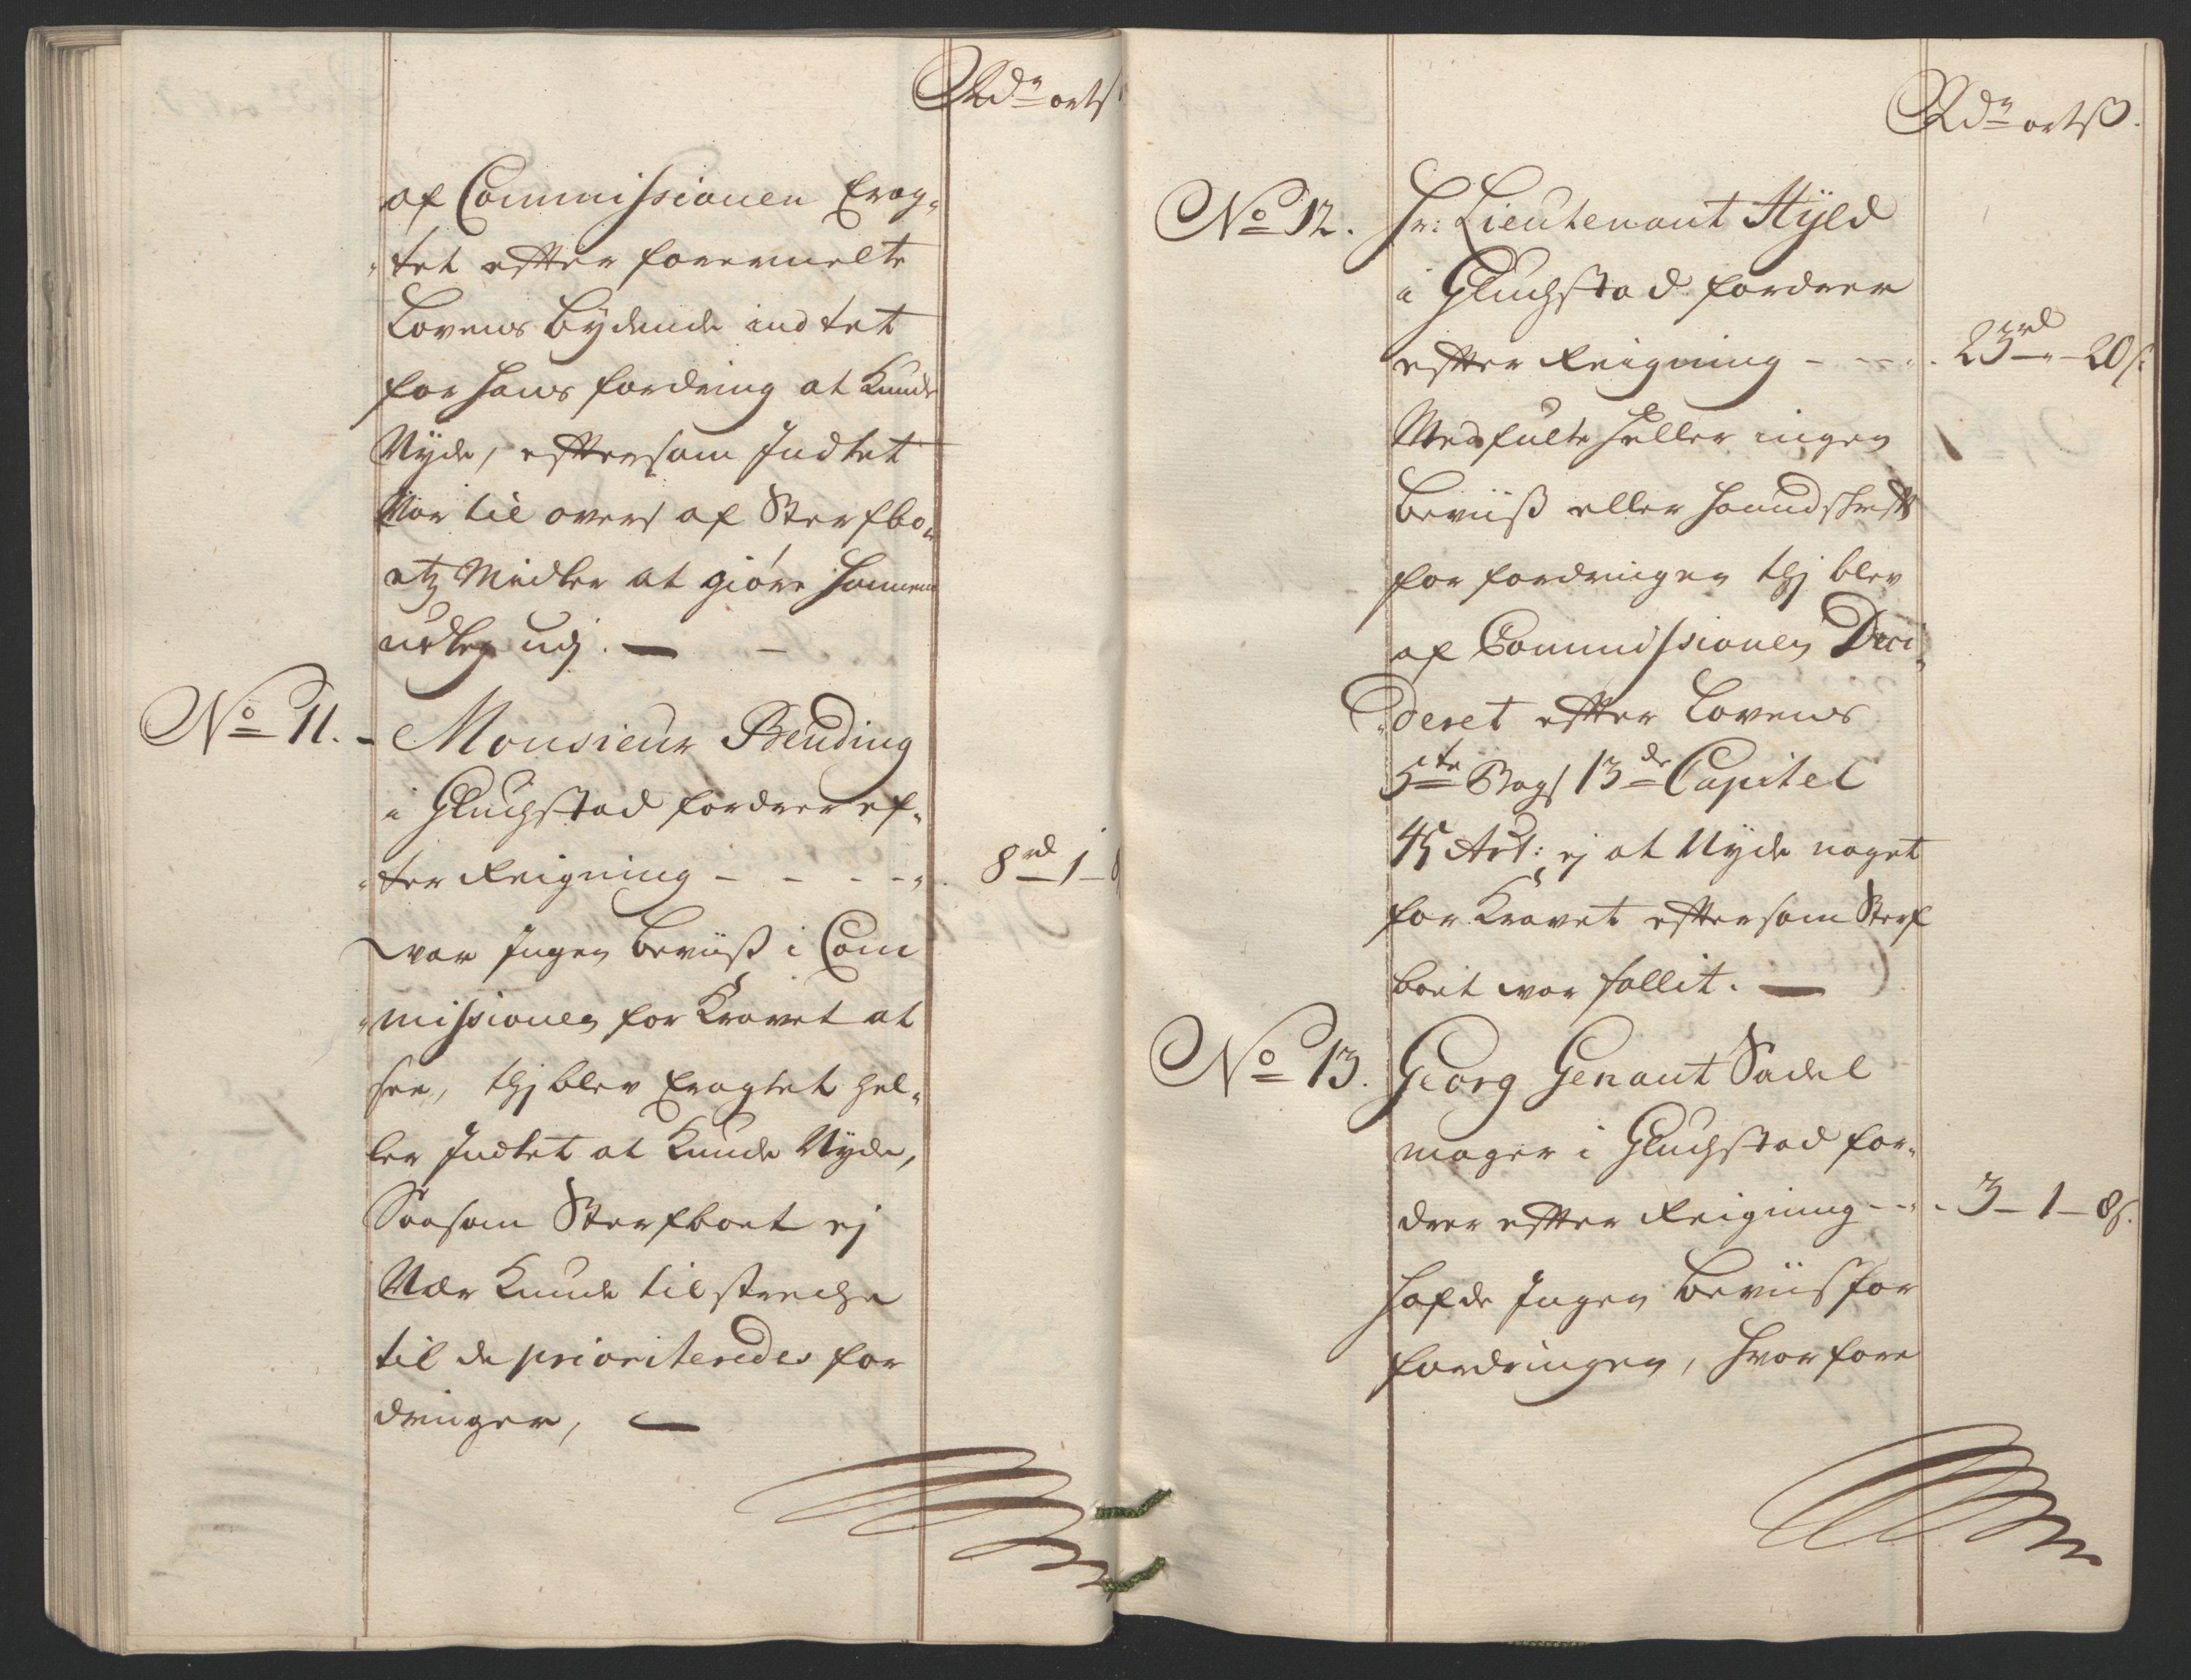 Rdr ort s
af Commissionen Erag-
tet efter forermelte
Lovens Bydende indtet
for hans fordring at kunde
Nyde, eftersom Indtet
Var til overs af Sterfbo-
etz Midler at giöre hannem
udleg udj. —
No 11. Monsieur Bending
i Gluchstad fordrer ef-
ter Reigning - - - - 8 rd 1
war Ingen beviiß i Com
missionen for Kravet at
see, thj blev Eragtet hel-
ler Indtet at kunde Nyde,
Saasom Sterfboet ej
Var kunde tilstreche
til de prioriteredes for
dringer, —
Rdr ort ß.
No 12. Hr: Lieutenant Hyld
i Gluchstad fordrer
efter Reigning - - - 23 rd - 20 s:
Medfulte heller ingen
beviiß eller haandskrift
for fordringen thj blev
af Commissionen Deci-
deret efter Lovens
5te Bogs 13de Capitel
45 Art: ej at Nyde noget
for Kravet eftersom Sterf
boet war fallit. —
No 13. Georg Genant Sadel
mager i Gluchstad for-
drer efter Reigning - - - 3 - 1 - 8 s.
hafde Ingen beviis for
fordringen, hvorfore